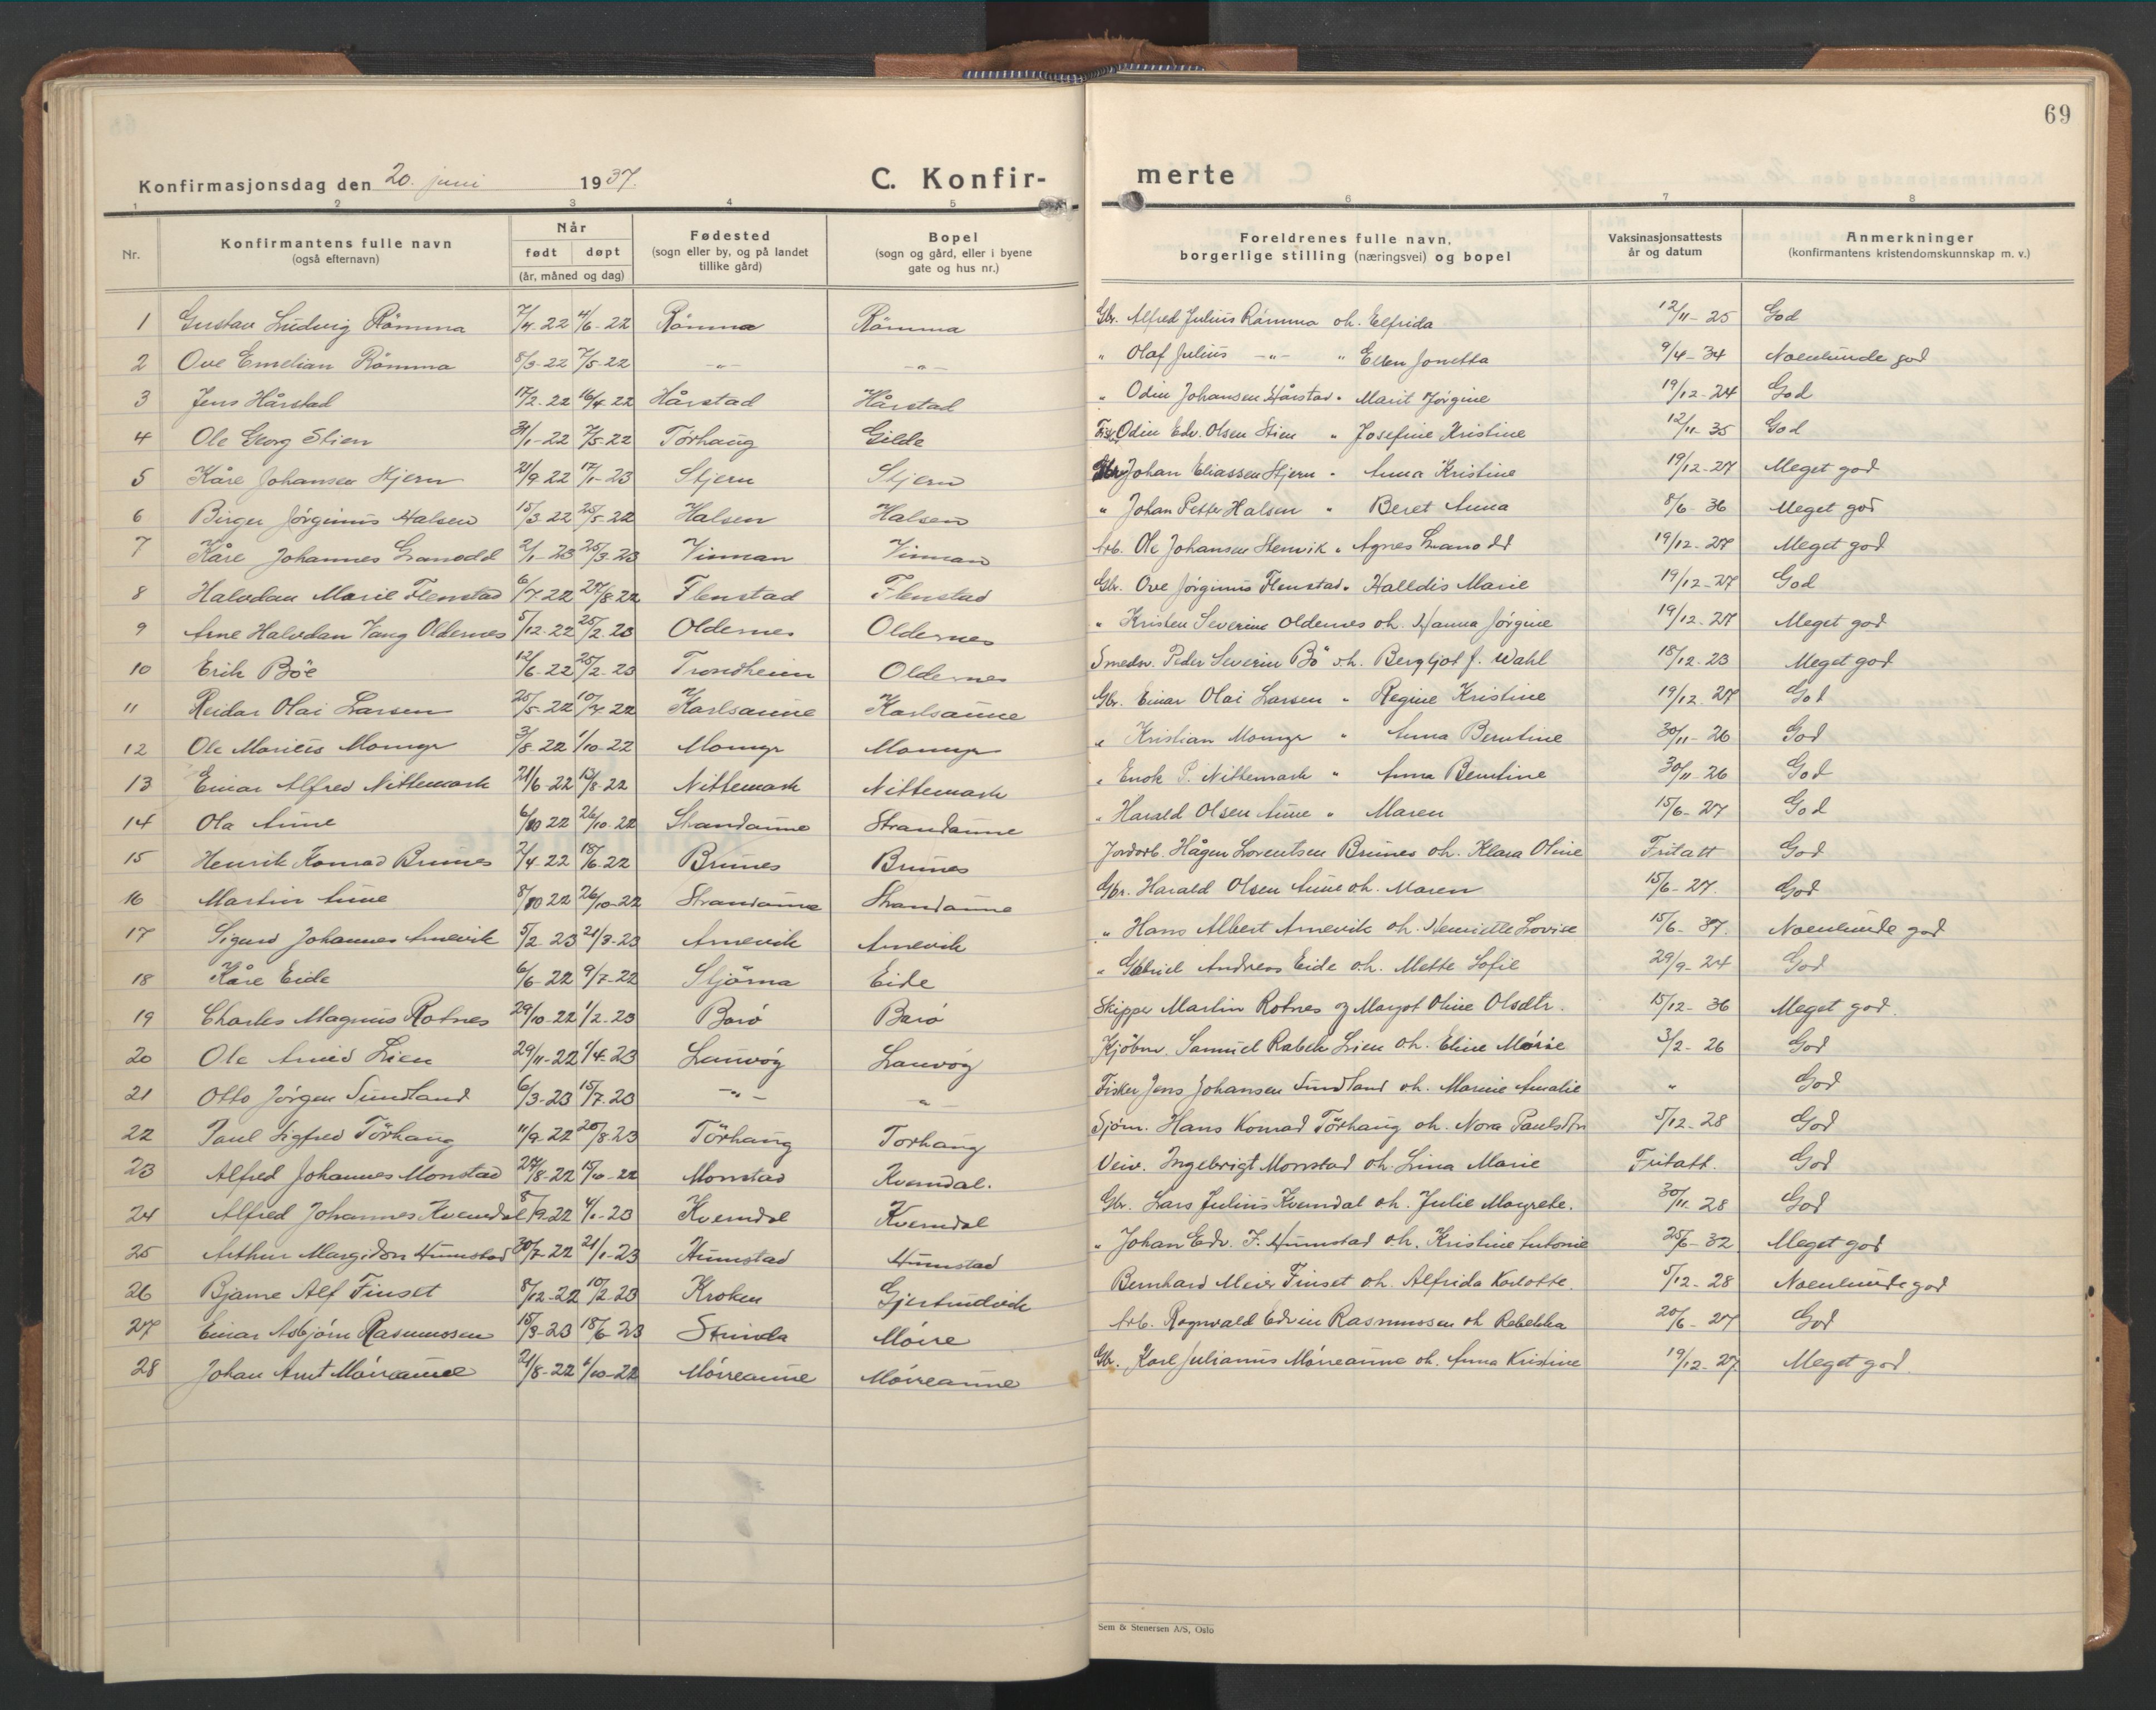 69
Konfirmasjonsdag den 20. juni 1937. C. Konfirmerte
1 2 3 4 5 6 7 8
Nr. Konfirmantens fulle navn (også efternavn) Når født døpt (år, måned og dag) Fødested (sogn eller by, og på landet tillike gård) Bopel (sogn og gård, eller i byene gate og hus nr.) Foreldrenes fulle navn, borgerlige stilling (næringsvei) og bopel Vaksinasjonsattests år og datum Anmerkninger (konfirmantens kristendomskunnskap m. v.)
1 Gustav Ludvig Råmma 7/4-22 4/6-22 Råmma Råmma Gbr. Alfred Julius Råmma oh. Elfrida 12/11-25 God
2 Ove Emelian Råmma 8/3-22 7/5-22 -"- -"- " Olaf Julius -"- " Ellen Jonetta 9/4-34 Noenlunde god
3 Jens Hårstad 17/2-22 16/4-22 Hårstad Hårstad " Odin Johansen Hårstad " Marit Jørgine 19/12-24 God
4 Ole Georg Stien 31/1-22 7/5-22 Tørhaug Gilde Fisk. Odin Edv. Olsen Stien " Josefine Kristine 12/11-35 God
5 Kåre Johansen Stjern 21/9-22 17/1-23 Stjern Stjern Gbr Johan Eliassen Stjern " Anna Kristine 19/12-27 Meget god
6 Birger Jørginus Halsen 15/3-22 25/5-22 Halsen Halsen " Johan Petter Halsen " Beret Anna 8/6-36 Meget god
7 Kåre Johannes Granodd 2/1-23 25/3-23 Vinnan Vinnan Arb. Ole Johansen Henvik " Agnes Granodd 19/12-27 Meget god
8 Halvdan Marie Flenstad 6/7-22 27/8-22 Flenstad Flenstad Gbr. Ove Jørginus Flenstad " Halldis Marie 19/12-27 God
9 Arne Halvdan Vang Oldernes 5/12-22 25/2-23 Oldernes Oldernes " Kristen Severine Oldernes oh. Hanna Jørgine 19/12-27 Meget god
10 Erik Böe 12/6-22 25/2-23 Trondheim Oldernes Smedm. Peder Severin Bö oh. Bergljot f. Wahl 18/12-23 Meget god
11 Reidar Olai Larsen 25/5-22 10/7-22 Karlsaune Karlsaune Gbr. Einar Olai Larsen " Regine Kristine 19/12-27 God
12 Ole Marius Momyr 3/8-22 1/10-22 Momyr Momyr " Kristian Momyr " Anna Berntine 30/11-26 God
13 Einar Alfred Nittemark 21/6-22 13/8-22 Nittemark Nittemark " Enok P. Nittemark " Anna Berntine 30/11-26 God
14 Ola Aune 6/10 22 26/10-22 Strandaune Strandaune " Harald Olsen Aune " Maren 15/6-27 God
15 Henrik Konrad Brunes 2/4-22 18/6-22 Brunes Brunes Jordarb. Hågen Lorentsen Brunes oh. Klara Oline Fritatt God
16 Martin Aune 8/10 22 26/10-22 Strandaune Strandaune Gbr. Harald Olsen Aune oh. Maren 15/6-27. God
17 Sigurd Johannes Arnevik 5/2-23 21/3-23 Arnevik Arnevik " Hans Albert Arnevik oh. Henriette Lovise 15/6-37. Noenlunde god
18 Kåre Eide 6/6-22 9/7-22 Stjörna Eide " Gabriel Andreas Eide oh. Mette Sofie 29/9-24 God
19 Charles Magnus Rotnes 29/10-22 1/2-23 Borø Borø Skipper Martin Rotnes og Margot Oline Olsdtr. 15/12-36 Meget god.
20 Ole Arvid Lien 29/11-22 1/4-23 Lauvøy Lauvøy Kjöbm. Samuel Rabek Lien oh. Eline Marie 3/2-26 God
21 Otto Jørgen Sundland 6/3-23 15/7-23 -"- -"- Fisker Jens Johansen Sundland oh. Marnie Amalie " God
22 Paul Sigfred Törhaug 11/9-22 20/8-23 Törhaug Torhaug Sjöm. Hans Konrad Törhaug oh. Nora Paulsdtr 5/12-28 God
23 Alfred Johannes Monstad 27/8-22 15/10-22 Monstad Kvemdal. Veiv. Ingebrigt Monstad oh. Lina Marie Fritatt. God
24 Alfred Johannes Kvemdal 8/9-22 4/1-23 Kvemdal Kvemdal Gbr. Lars Julius Kvemdal oh. Julie Margrete. 30/11-28 God
25 Arthur Margidon Humstad 30/7-22 21/1-23 Humstad Humstad " Johan Edv. J. Humstad oh. Kristine Antonie 25/6-32 Meget god
26 Bjarne Alf Finset 8/12-22 10/2-23 Kroken Gjertrudvik Bernhard Meier Finset oh. Alfrida Karlotte. 5/12-28 Noenlunde god
27 Einar Asbjörn Rasmussen 15/3-23 18/6-23 Strinda Mörre Arb. Ragnvald Edvin Rasmussen oh Rebekka 20/6-27 God
28 Johan Arnt Mörreaunet 21/8-22 1/10-22 Mörreaune Mörreaune Gbr. Karl Julianus Mörreaune oh. Anna Kristine 19/12-27 Meget god.
Sem & Stenersen A/S, Oslo